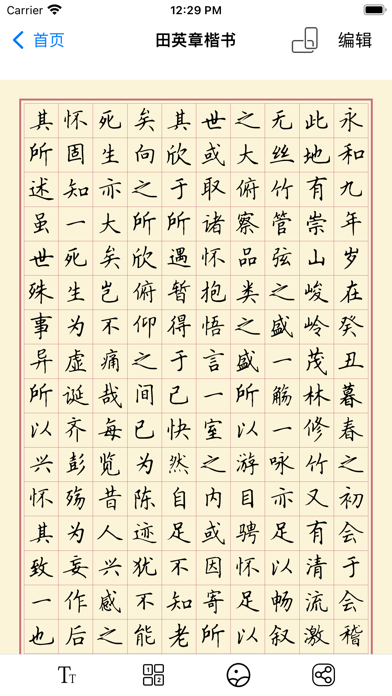 Carrier 12:29 PM
首页 田英章楷书 编辑
永和九年岁在癸丑暮春之初会于会稽
此地有崇山峻岭茂林修竹又有清流激
无丝竹管弦之盛一觞一咏亦足以畅叙
之大俯察品类之盛所以游目骋怀足以
世或取诸怀抱悟言一室之内或因寄所
其欣于所遇暂得于己快然自足不知老
矣向之所欣俯仰之间已为陈迹犹不能
死生亦大矣岂不痛哉每览昔人兴感之
怀固知一死生为虚诞齐彭殇为妄作后
其所述虽世殊事异所以兴怀其致一也
TT
1 2